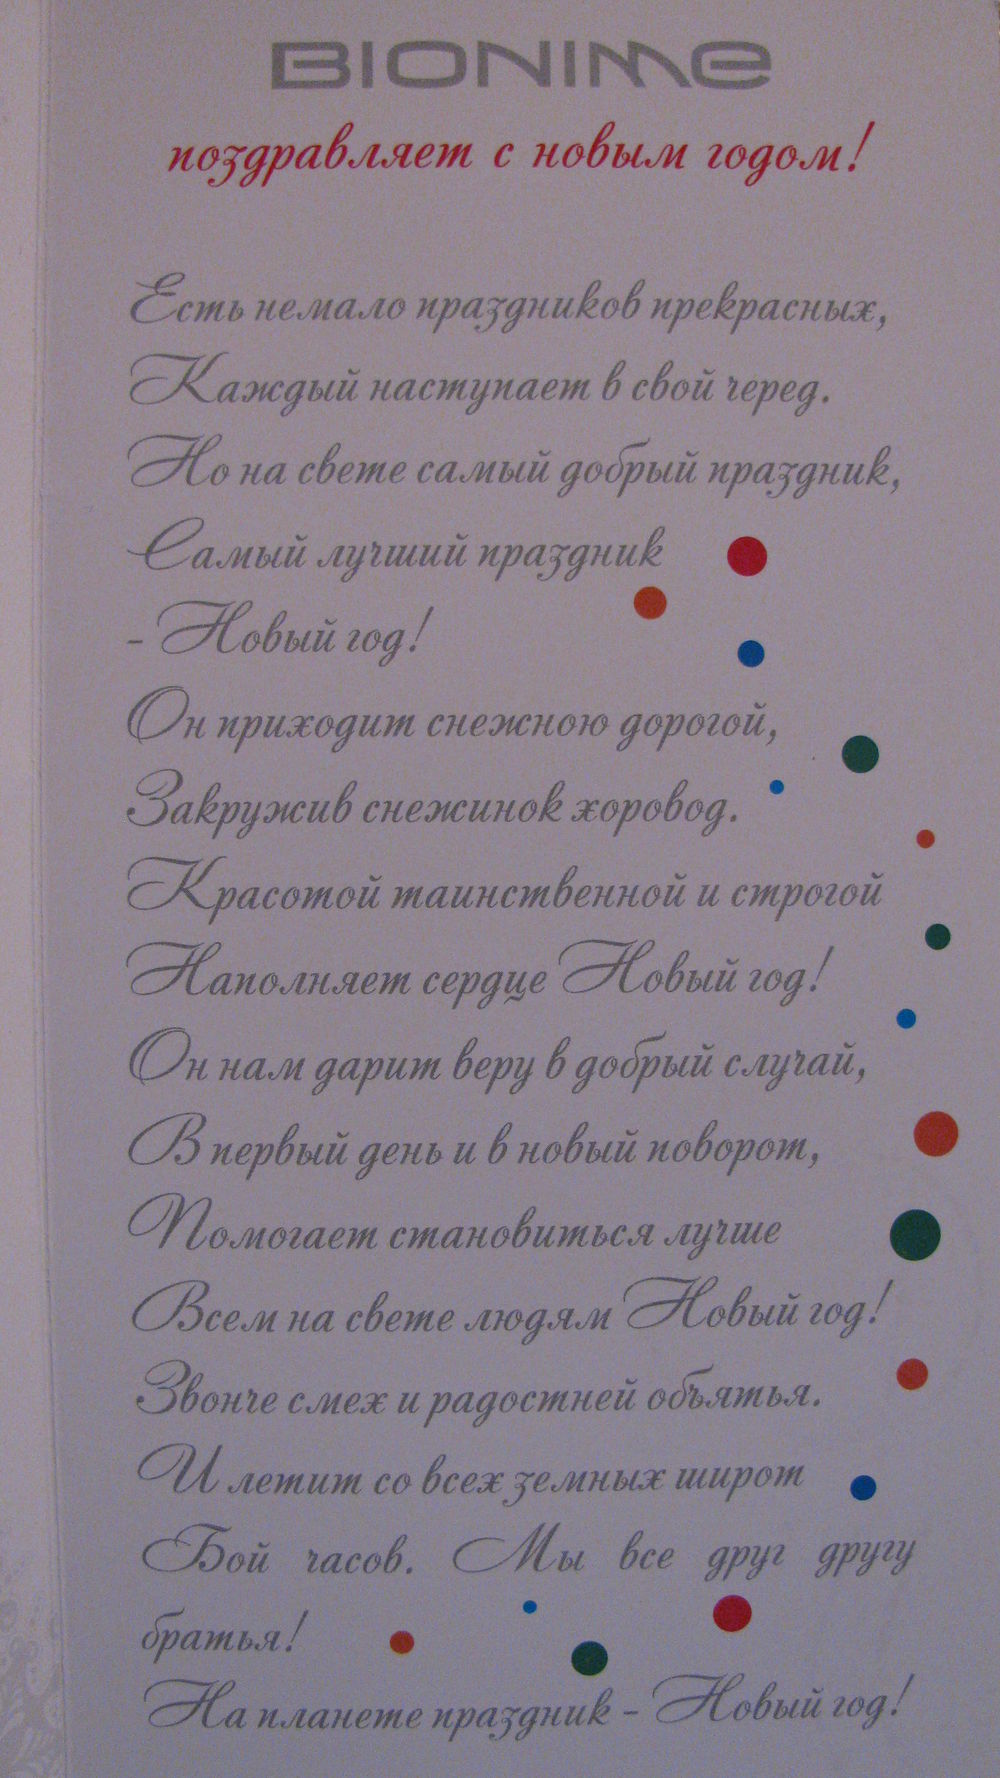 BIONIME
поздравляет с новым годом!
Есть немало праздников прекрасных,
Каждый наступает в свой черед.
Но на свете самый добрый праздник,
Самый лучший праздник
- Новый год!
Он приходит снежною дорогой,
Закружив снежинок хоровод.
Красотой таинственной и строгой
Наполняет сердце Новый год!
Он нам дарит веру в добрый случай,
В первый день и в новый поворот,
Помогает становиться лучше
Всем на свете людям Новый год!
Звонче смех и радостней объятья.
И летит со всех земных широт
Бой часов. Мы все друг другу
братья!
На планете праздник - Новый год!